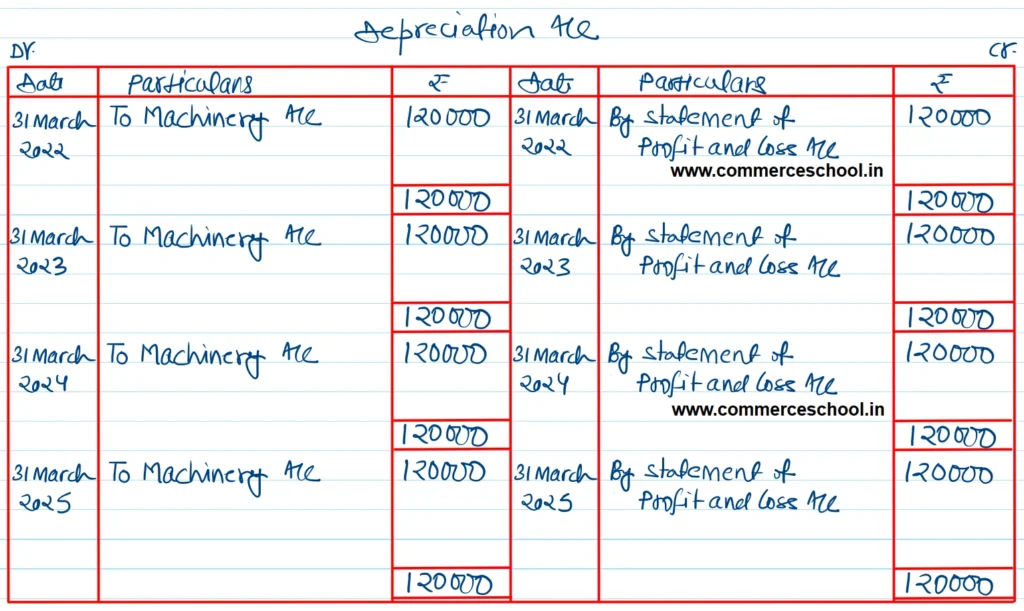 Depreciation A/c
Dr. Cr.
Date Particulars ₹ Date Particulars ₹
31 March To Machinery A/c 120000 31 March By Statement of 120000
2022 2022 Profit and Loss A/c
www.commerceschool.in
120000 120000
31 March To Machinery A/c 120000 31 March By Statement of 120000
2023 2023 Profit and Loss A/c
120000 120000
31 March To Machinery A/c 120000 31 March By Statement of 120000
2024 2024 Profit and Loss A/c
www.commerceschool.in
120000 120000
31 March To Machinery A/c 120000 31 March By Statement of 120000
2025 2025 Profit and Loss A/c
120000 120000